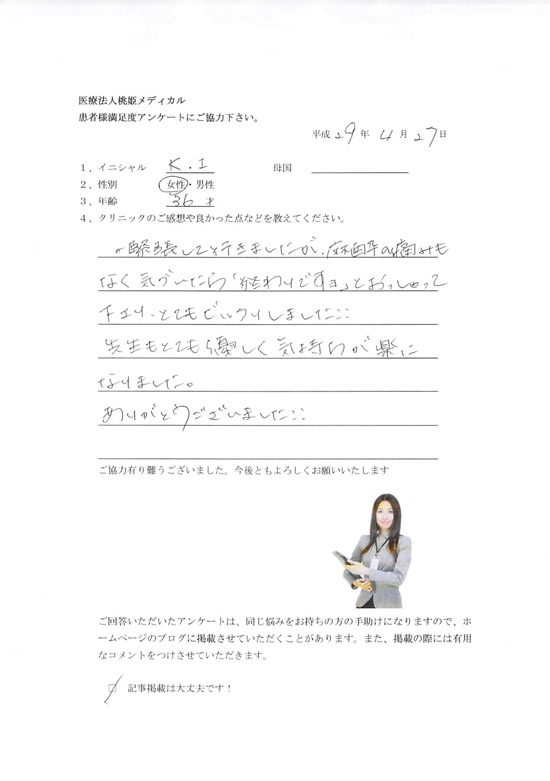 医療法人桃姫メディカル
患者様満足度アンケートにご協力下さい。
平成 29 年 4 月 27 日
1、イニシャル K.I 母国
2、性別 女性・男性
3、年齢 36 才
4、クリニックのご感想や良かった点などを教えてください。
緊張して行きましたが、麻酔の痛みも
なく気づいたら「終わりですョ」とおっしゃって
下さり、とてもビックリしました::
先生もとても優しく気持ちが楽に
なりました。
ありがとうございました::
ご協力有り難うございました。今後ともよろしくお願いいたします
ご回答いただいたアンケートは、同じ悩みをお持ちの方の手助けになりますので、ホ
ームページのブログに掲載させていただくことがあります。また、掲載の際には有用
なコメントをつけさせていただきます。
☑ 記事掲載は大丈夫です！